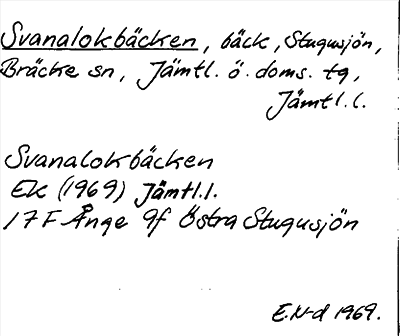 Svanalokbäcken, bäck, Stugusjön,
Bräcke sn, Jämtl. ö. doms. tg,
Jämtl. l.
Svanalokbäcken
EK (1969) Jämtl. l.
17F Ånge 9f Östra Stugusjön
E.N-d 1969.